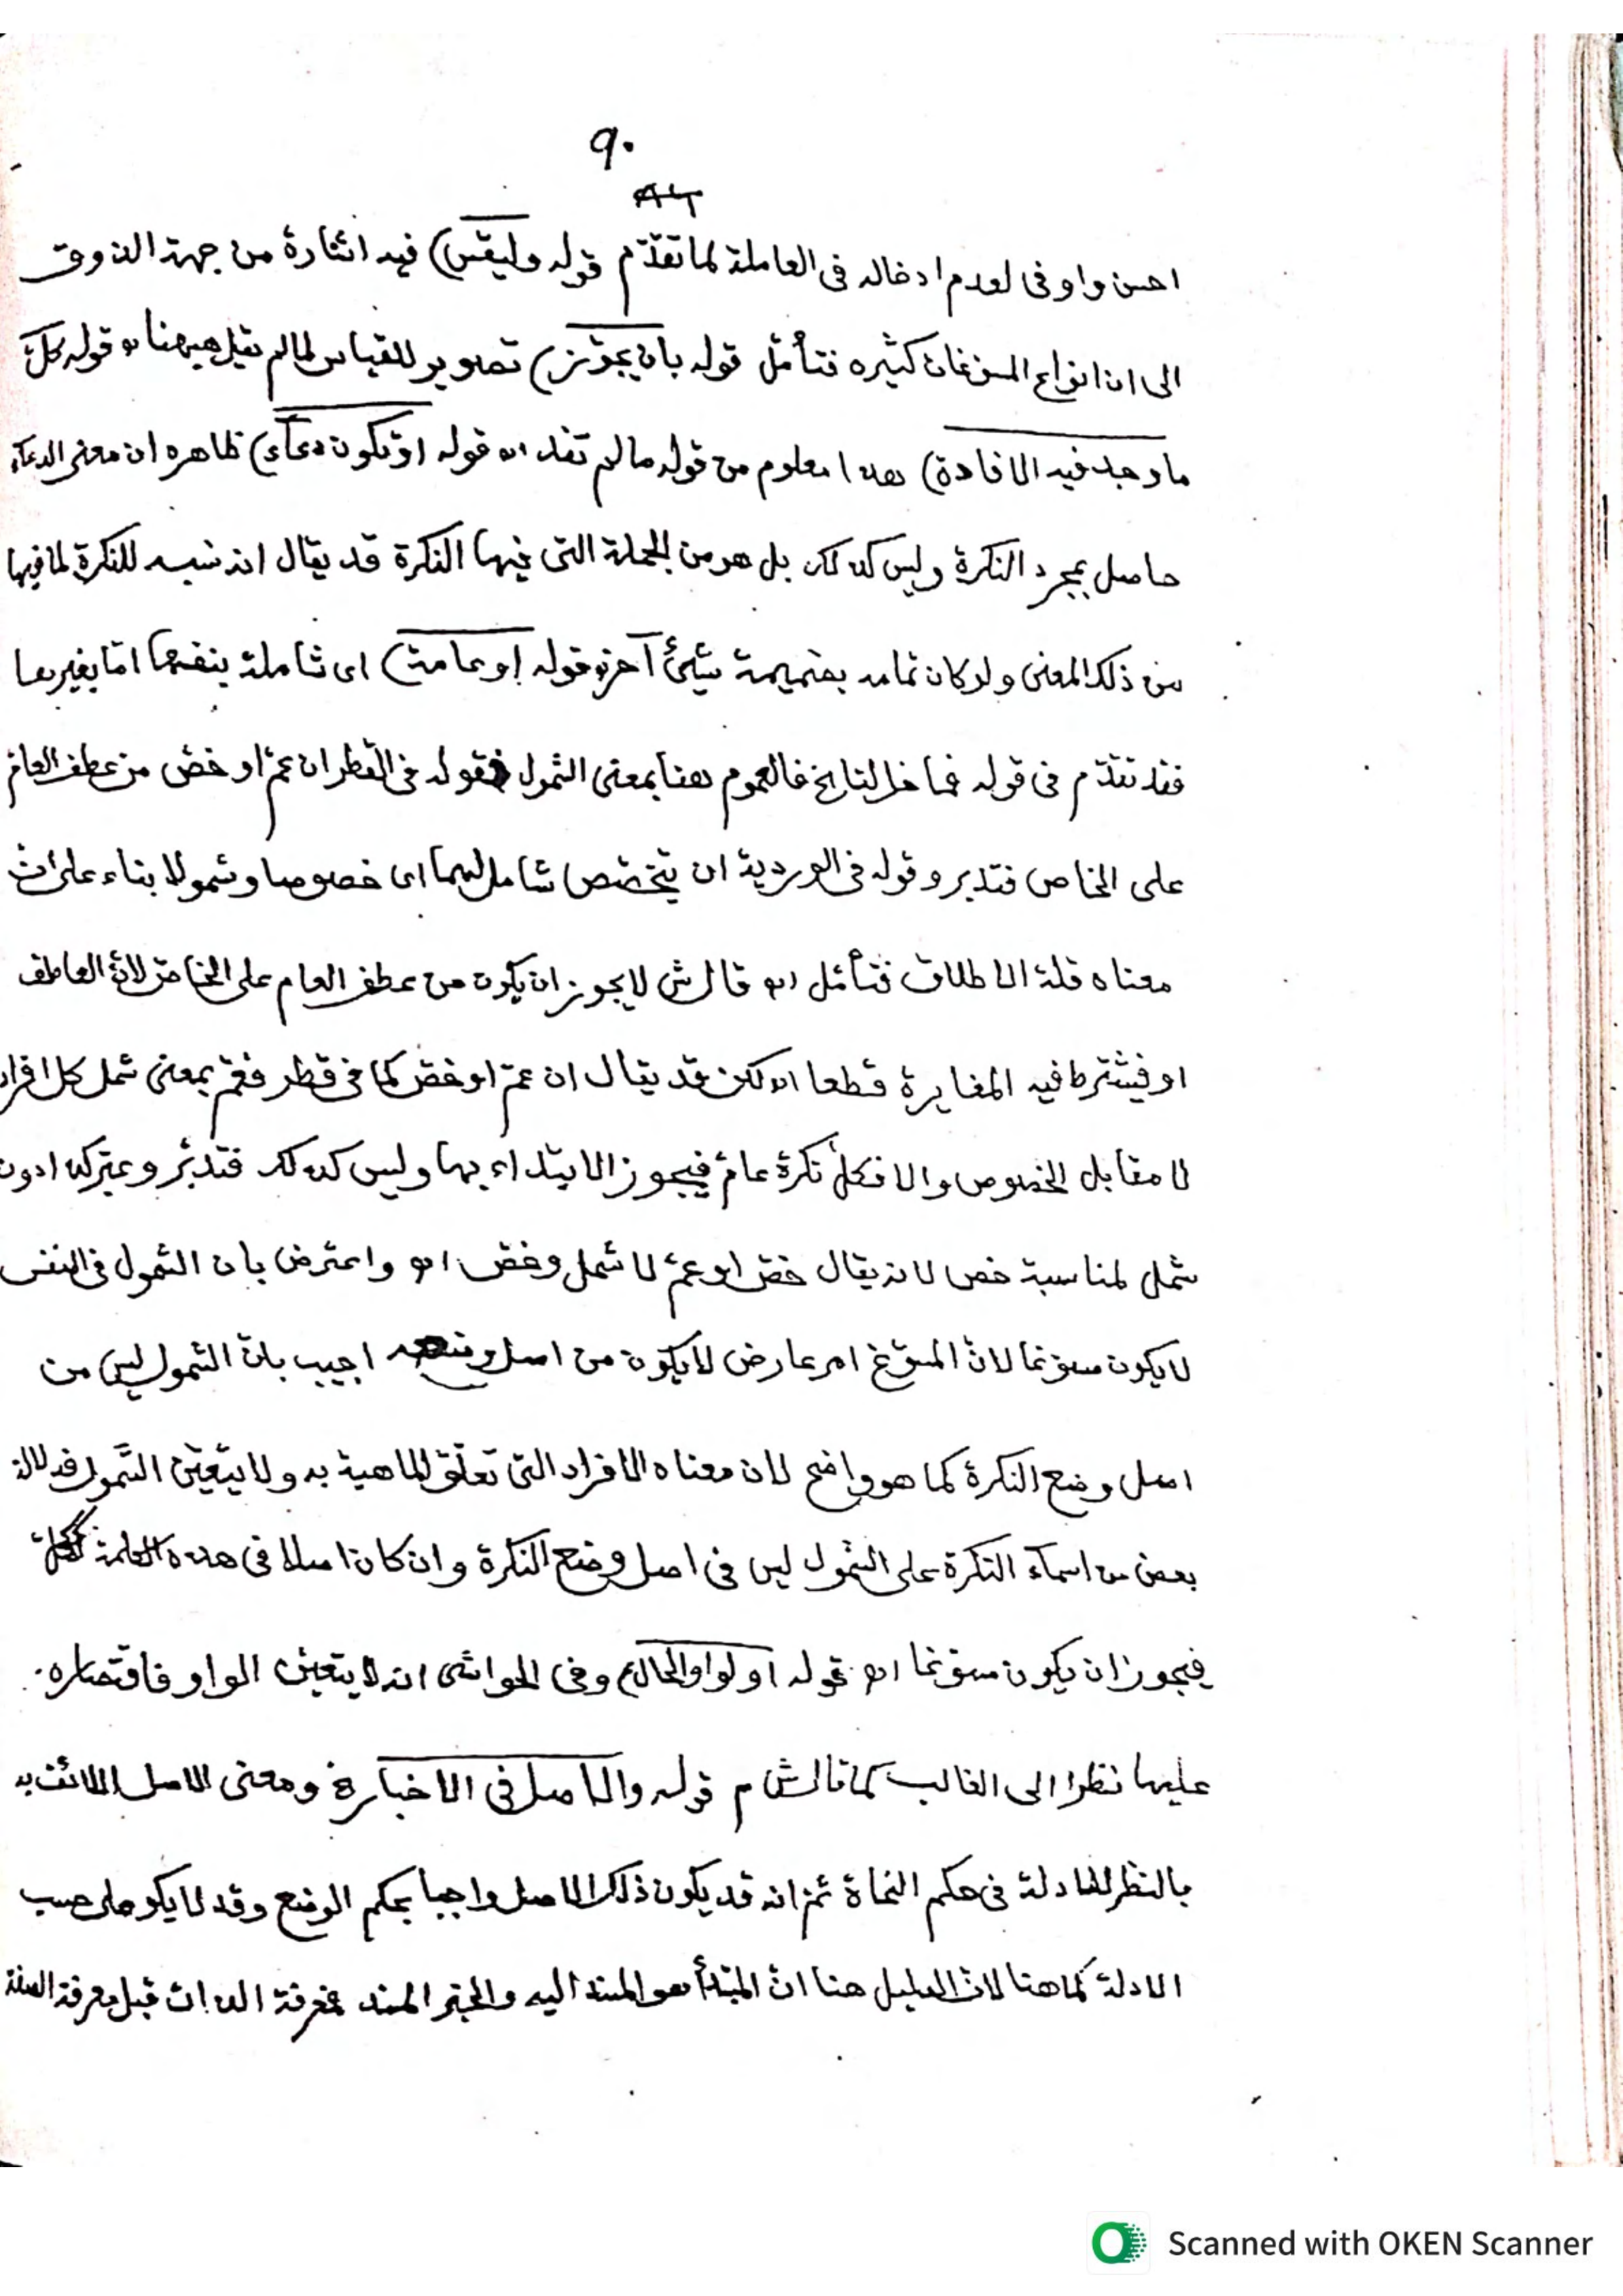 ٩٠
٨٦
احسن واوفى لعدم ادخاله فى العاملة لما تقدّم قوله وليقس) فيه اشارة من جهة الذوق
الى ان انواع المسوغات كثيره فتأمّل قوله بان يجوّز) تصوير للقياس لما لم يقل ههنا اه قوله كلّ
ما وجد فيه الافادة) هذا معلوم من قوله ما لم تفد اه قوله او تكون دعاء) ظاهره ان معنى الدعآء
حاصل بمجرد النكرة وليس كذلك بل هو من الجملة التى فيها النكرة قد يقال انه نسبه للنكرة لما فيها
من ذلك المعنى ولو كان تمامه بضميمة شئ آخر قوله او عامة) اى شاملة بنفسها امّا بغيرها
فقد تقدّم فى قوله فما خل لنا فالعموم هنا بمعنى الشمول فقوله فى القطر ان عمّ او خصّ من عطف العام
على الخاص فتدبر وقوله فى الوردية ان يتخصّص شامل لهما اى خصوصا وشمولا بناء على انّ
معناه قلة الاطلاق فتأمّل اه قال ش لا يجوز ان يكون من عطف العام على الخاصّ لانّ العاطف
او فيشترط فيه المغايرة قطعا اه لكن قد يقال ان عمّ او خصّ كما فى قطر فعمّ بمعنى شمل كل افراد
لا مقابل الخصوص والا فكلّ نكرة عامّ فيجوز الابتداء بها وليس كذلك فتدبّر وعبّر كذا دون
شمل لمناسبة خص لانه يقال خصّ او عمّ لا شمل وخصّ اه واعترض بان الشمول فى النفس
لا يكون مسوّغا لانّ المسوّغ امر عارض لا يكون من اصل وضعه اجيب بانّ الشمول ليس من
اصل وضع النكرة كما هو واضح لان معناه الافراد التى تعلّق الماهية به ولا يتعيّن الشمول فدلالة
بعض من اسمآء النكرة على الشمول ليس فى اصل وضع النكرة وان كان اصلا فى هذه الكلمة ككلّ
فيجوز ان يكون مسوّغا اه قوله او لواو الحال) وفى الحواشى انه لا يتعين الواو فاقتصاره
عليها نظرا الى الغالب كما قال ش م قوله والاصل فى الاخبار) ومعنى الاصل اللائق به
بالنظر للادلة فى حكم النحاة ثمّ انه قد يكون ذلك الاصل واجبا بحكم الوضع وقد لا يكو على حسب
الادلة كما هنا لانّ الدليل هنا انّ المبتدأ هو المسند اليه والخبر المسند فمعرفة الذات قبل معرفة الصفة
Scanned with OKEN Scanner